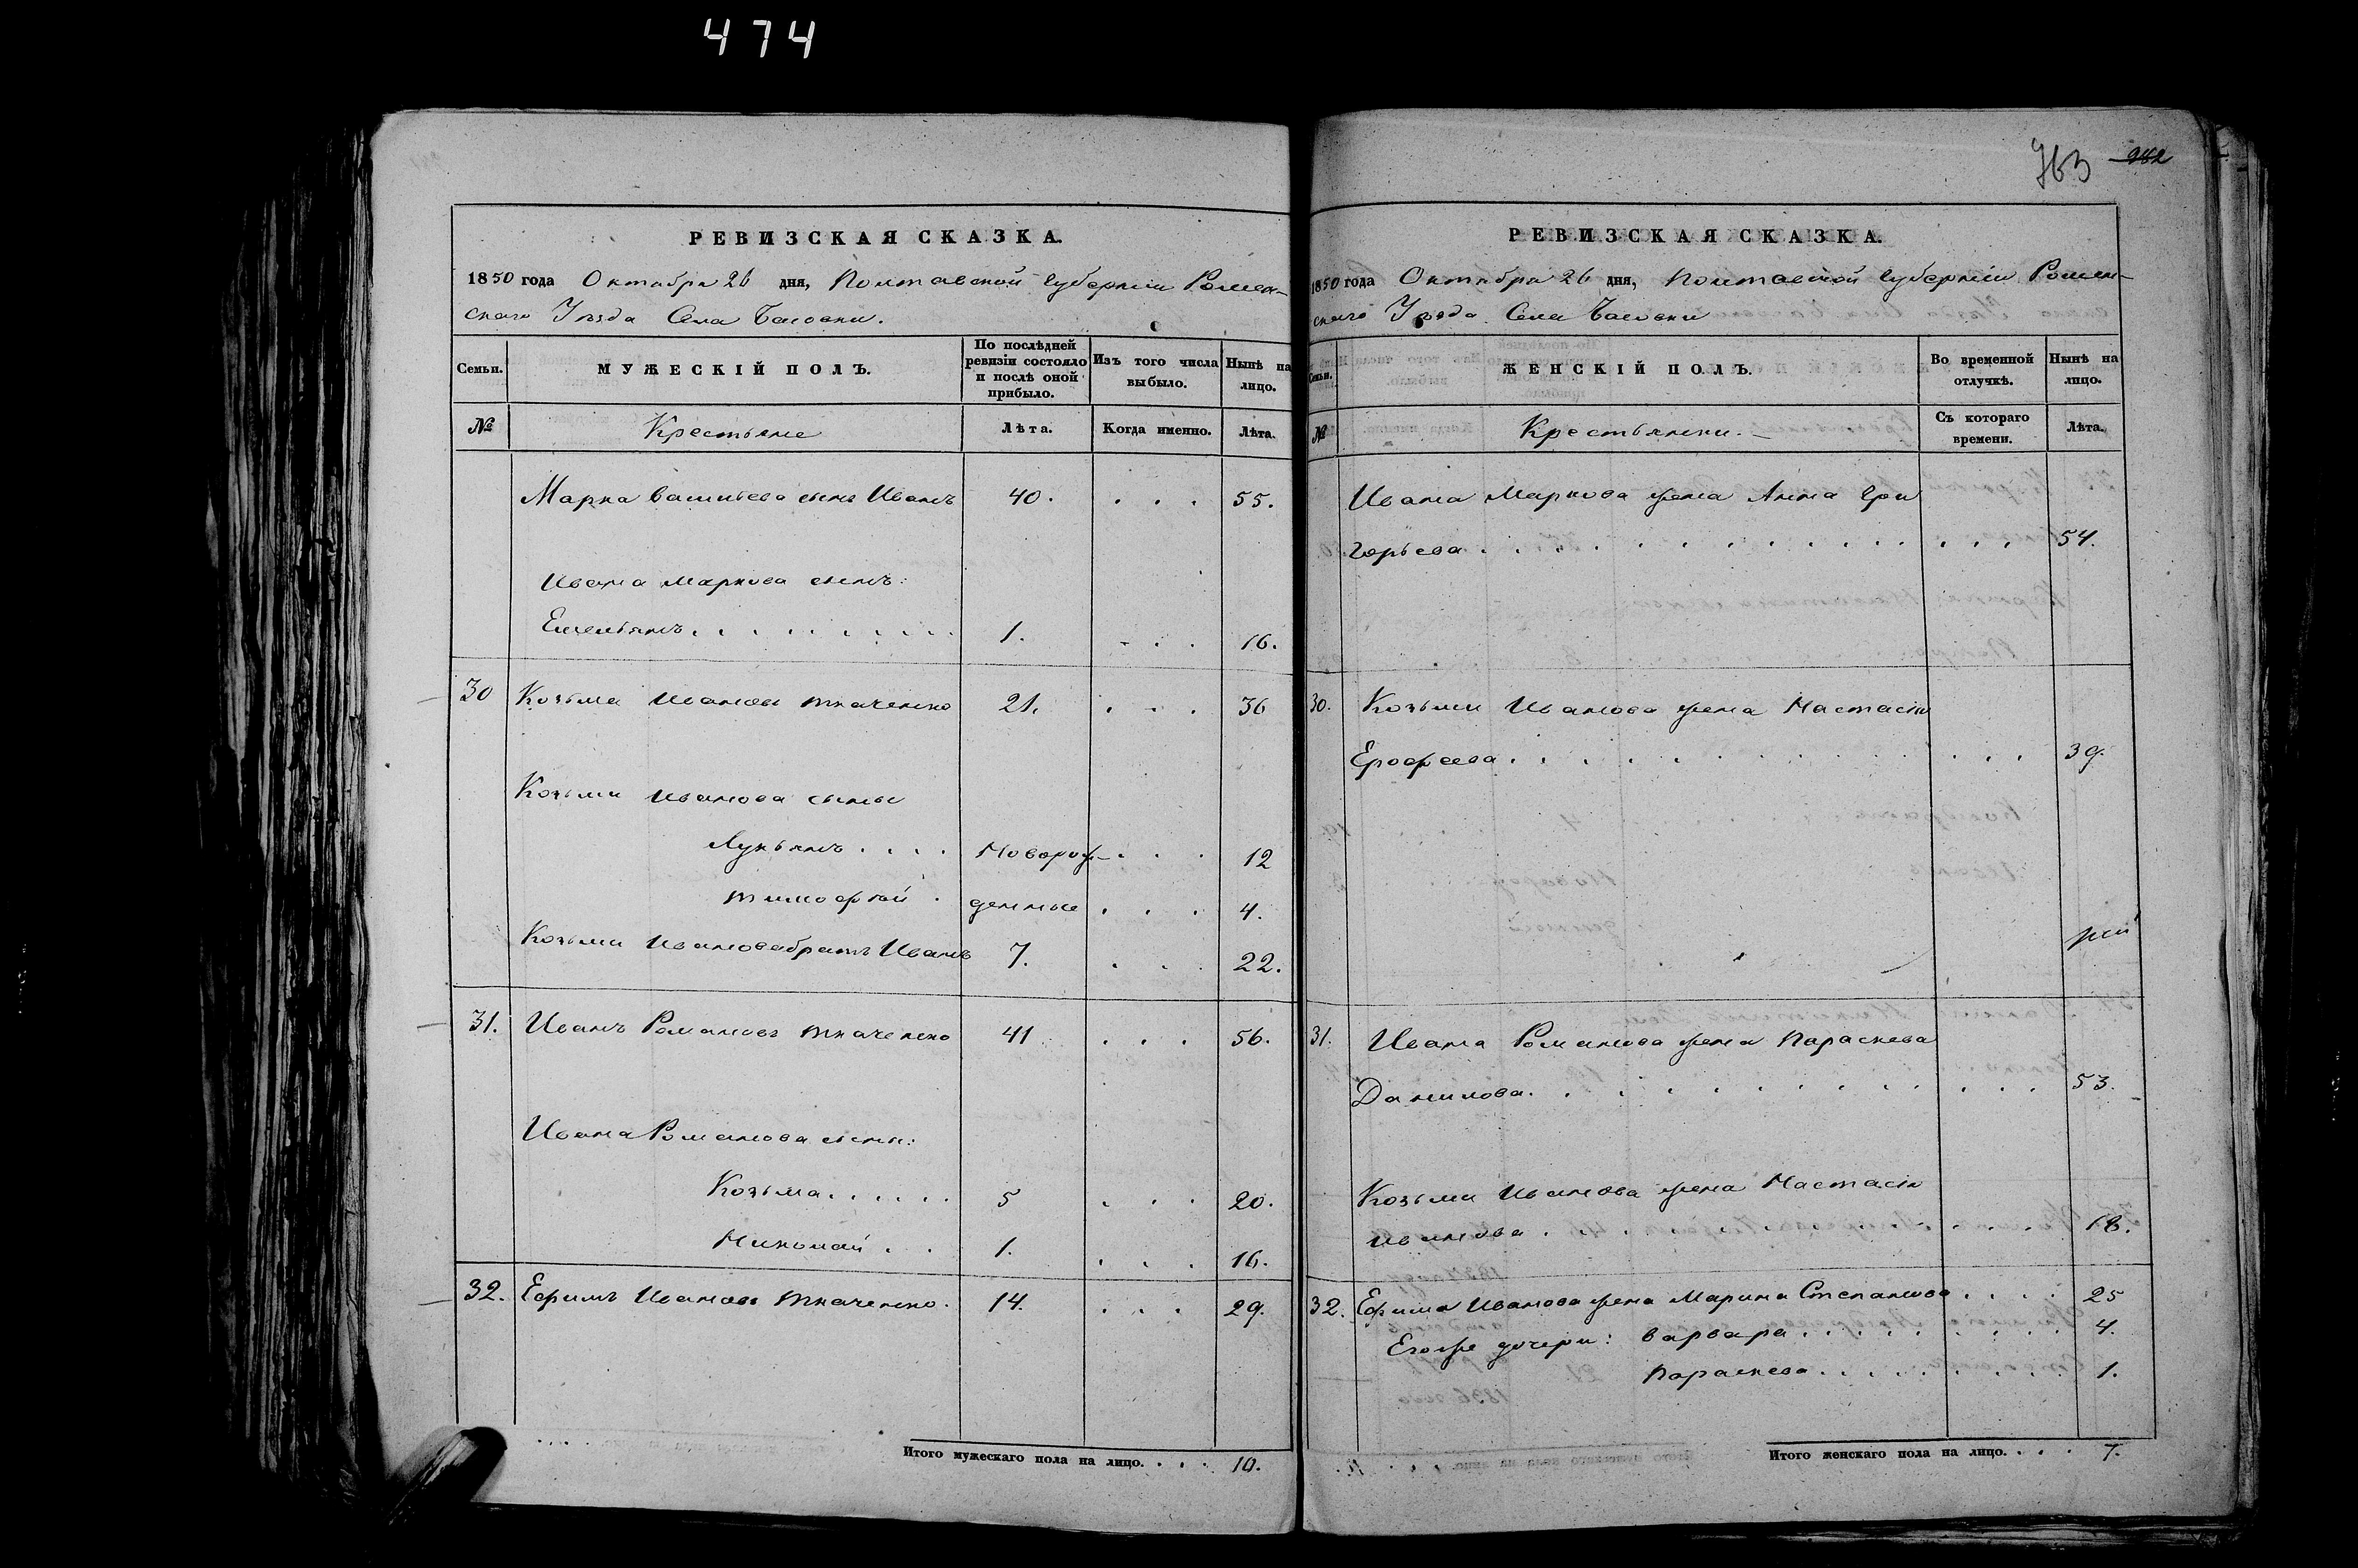 474
РЕВИЗСКАЯ СКАЗКА.
1850 года Октября 26 дня, Полтавской Губернiи Ромен-
скаго Уѣзда Села Басовки.
Семьи.
МУЖЕСКIЙ ПОЛЪ.
По послѣдней
ревизiи состояло
и послѣ оной
прибыло.
Изъ того числа
выбыло.
Нынѣ на
лицо.
№
Крестьяне
Лѣта.
Когда именно.
Лѣта.
Марка Васильева сынъ Иванъ 40. . . . 55.
Ивана Маркова сынъ:
Емельянъ. . . . . . . . . 1. . . . 16.
30 Козьма Ивановъ Ткаченко 21. . . . 36
Козьми Иванова сыны
Лукьянъ . . . . Оворож- . . . 12
Тимофѣй . денные . . . 4.
Козьми Иванова братъ Иванъ 7. . . . 22.
31. Иванъ Романовъ Ткаченко 41 . . . 56.
Ивана Романова сыны:
Козьма . . . . . . 5 . . . 20.
Николай . . . 1. . . . 16.
32. Ефимъ Ивановъ Ткаченко. 14. . . . 29.
Итого мужескаго пола на лицо. . . . 10.
763 982
РЕВИЗСКАЯ СКАЗКА.
1850 года Октября 26 дня, Полтавской Губернiи Ромен-
скаго Уѣзда Села Басовки
Семьи.
ЖЕНСКIЙ ПОЛЪ.
Во временной
отлучкѣ.
Нынѣ на
лицо.
№
Крестьянки.
Съ котораго
времени.
Лѣта.
Ивана Маркова жена Анна Гри
горьева . . . . . . . . . . . 54.
30. Козьми Иванова жена Настасiя
Ерофеева . . . . . . . . . . . 39.
31. Ивана Романова жена Параскева
Данилова . . . . . . . . . . . 53.
Козьми Иванова жена Настасiя
Иванова . . . . . . . . . . . 18.
32. Ефима Иванова жена Марина Степанова . . . . 25
Егоже дочери: Варвара . . . . . . . . 4.
Параскева . . . . . . . . 1.
Итого женскаго пола на лицо. . . . 7.